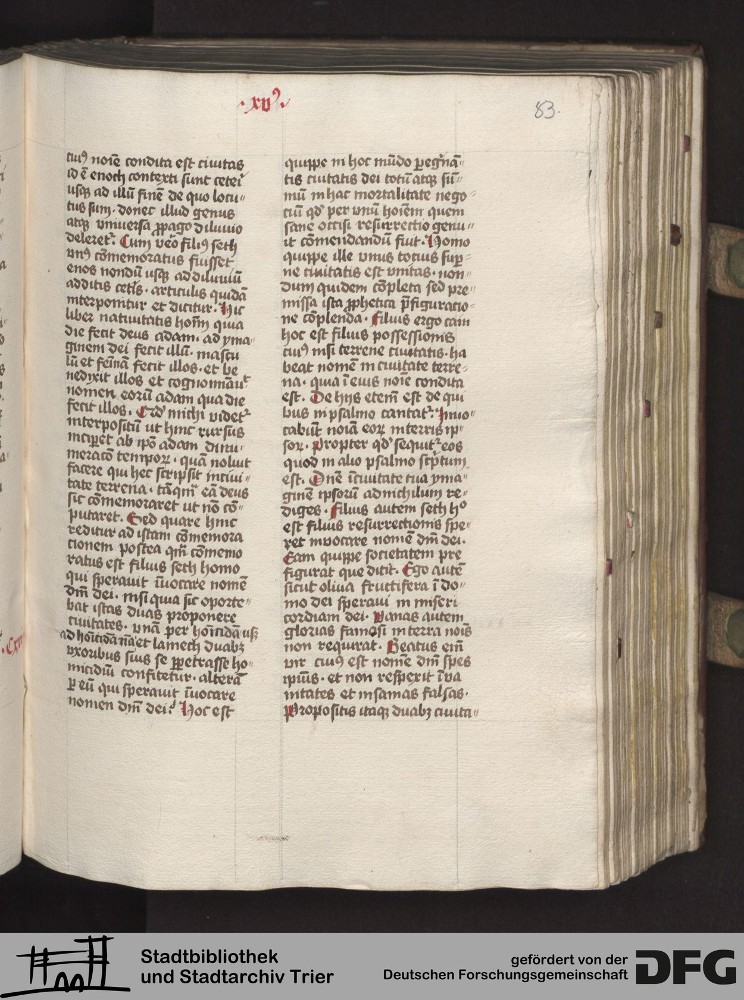 ·xvꝰ·
83·
cuiꝰ noīe condita est ciuitas
id ē enoch contexti sunt ceteī
usqꝫ ad illū finē de quo locu⸗
tus sum· donec illud genus
atqꝫ vniuersa ꝓpago diluuio
deleret᷑· Cum v̄o filiꝰ seth
vnꝰ cōmemoratus fuisset
enos nondū usqꝫ ad diluuiū
additis cetīs· articulus quidā
interponitur et dicitur· Hic
liber natiuitatis hoīm qua
die fecit deus adam· ad yma⸗
ginem dei fecit illū· mascu
lū et feīnā fecit illos· et be
nedixit illos et cognominauit
nomen eorū adam qua die
fecit illos· Qd̓ michi videt᷑
interpositū ut hinc rursus
inciperet ab ipō adam dinu⸗
meracō tempoꝝ· quā noluit
facere qui hec scripsit in ciui⸗
tate terrena· tāqm̄ eā deus
sic cōmemoraret ut nō cō⸗
putaret· Sed quare hinc
reditur ad istam cōmemora
cionem postea qm̄ cōmemo
ratus est filius seth homo
qui sperauit īuocare nomē
dn̄i dei· nisi quia sic oporte⸗
bat istas duas proponere
ciuitates· vnā per homicidā usqꝫ
ad homicidā nā et lamech duabꝫ
vxoribus suis se ꝑpetrasse ho⸗
micidiū confitetur· alterā
ꝑ eū qui sperauit īuocare
nomen dn̄i dei· Hoc est
quippe in hoc mūdo ꝑegⁱnā⸗
tis ciuitatis dei totū atqꝫ sū⸗
mū in hac mortalitate nego⸗
ciū qd̓ per vnū hoīem quem
sane occisi resurrectio genu⸗
it cōmendandū fuit· Homo
quippe ille vnus tocius suꝑ⸗
ne ciuitatis est vnitas· non⸗
dum quidem cōpleta sed pre⸗
missa ista ꝓphetica p̄figuracio⸗
ne cōplenda· Filius ergo cain
hoc est filius possessionis
cuiꝰ nisi terrene ciuitatis· ha
beat nomē in ciuitate terre⸗
na· quia ī eius noīe condita
est· De hijs etem̄ est de qui
bus in psalmo cantat᷑· Inuo⸗
cabūt noīa eoꝝ in terris ip⸗
soꝝ· Propter qd̓ sequit᷑ eos
quod in alio psalmo sc̓ptum
est· Dn̄e ī ciuitate tua yma⸗
ginē ipsorū ad nichilum re⸗
diges· Filius autem seth hᵒ
est filius resurrectionis spe⸗
ret inuocare nomē dn̄i dei·
Eam quippe societatem pre
figurat que dicit· Ego autē
sicut oliua fructifera ī do⸗
mo dei speraui in miseri
cordiam dei· Vanas autem
glorias famosi in terra nois
non requirat· Beatus eīm
vir cuiꝰ est nomē dn̄i spes
ipiꝰ· et non respexit ī va
nitates et insanias falsas·
Propositis itaqꝫ duabꝫ ciuita⸗
Stadtbibliothek
und Stadtarchiv Trier
gefördert von der
Deutschen Forschungsgemeinschaft
DFG